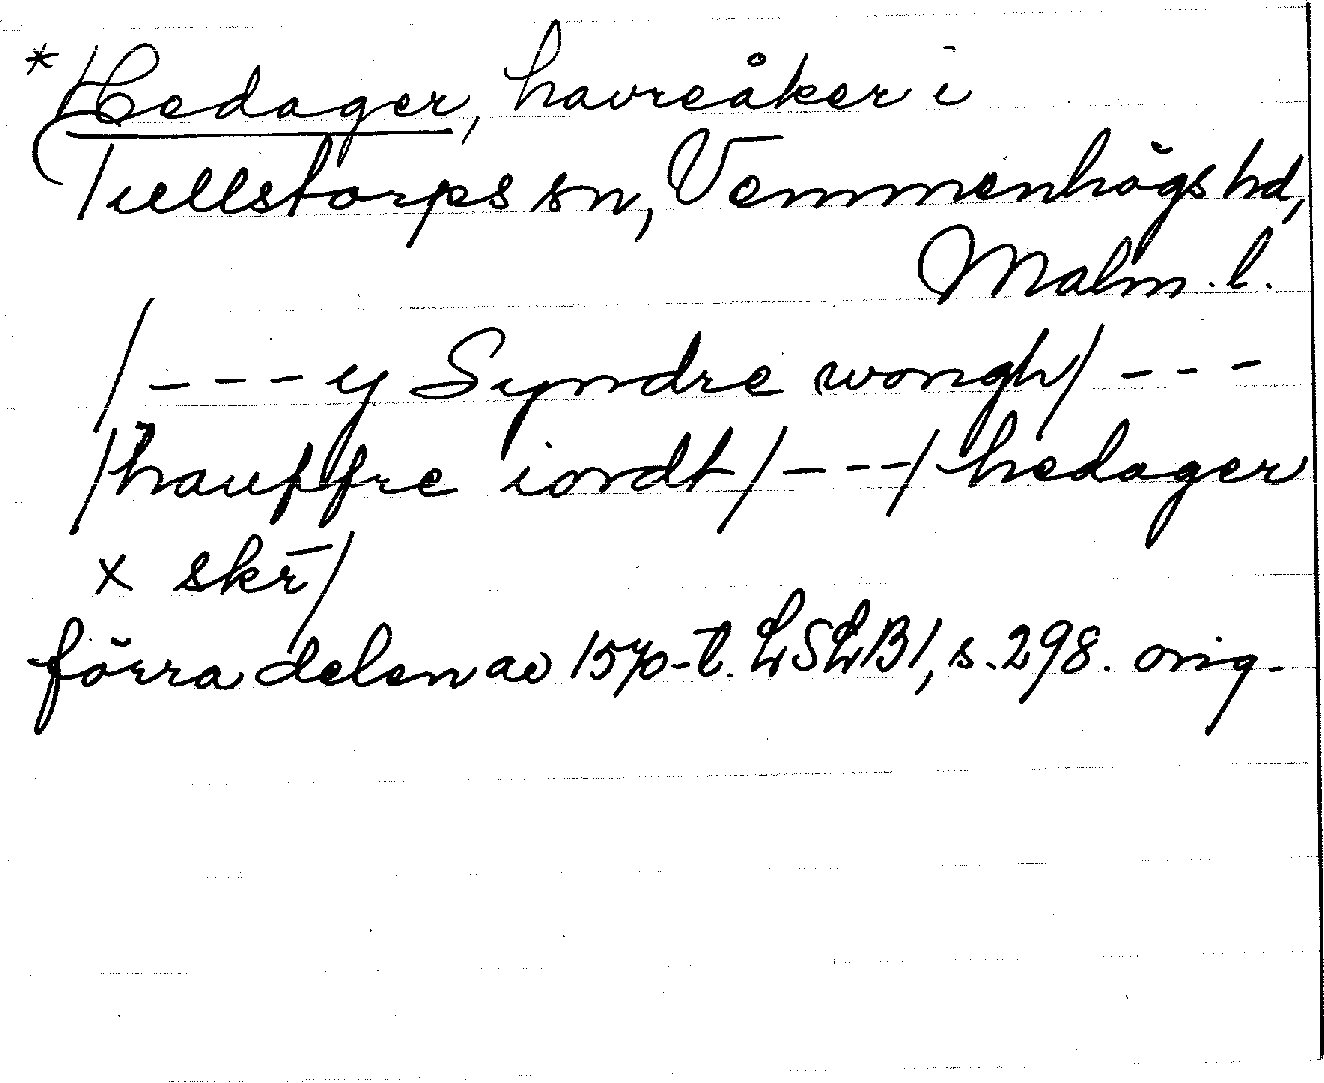 *Hedager, havreåker i
Tullstorps sn, Vemmenhögs hd,
Malm. l.
/ - - - y Syndre wongh/ - - -
/hauffre iordt/ - - -/ hedager
x skr/
förra delen av 1570-t. LSLB1, s. 298. orig.